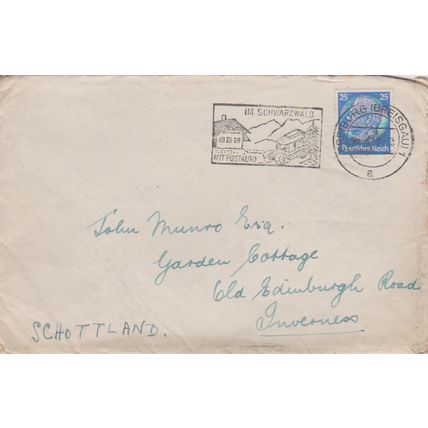 IM SCHWARZWALD
MIT POSTAUTO
25 25
Deutsches Reich
BURG (BREISGAU) 1
a
John Munro Esq.
Garden Cottage
Old Edinburgh Road
Inverness
SCHOTTLAND.